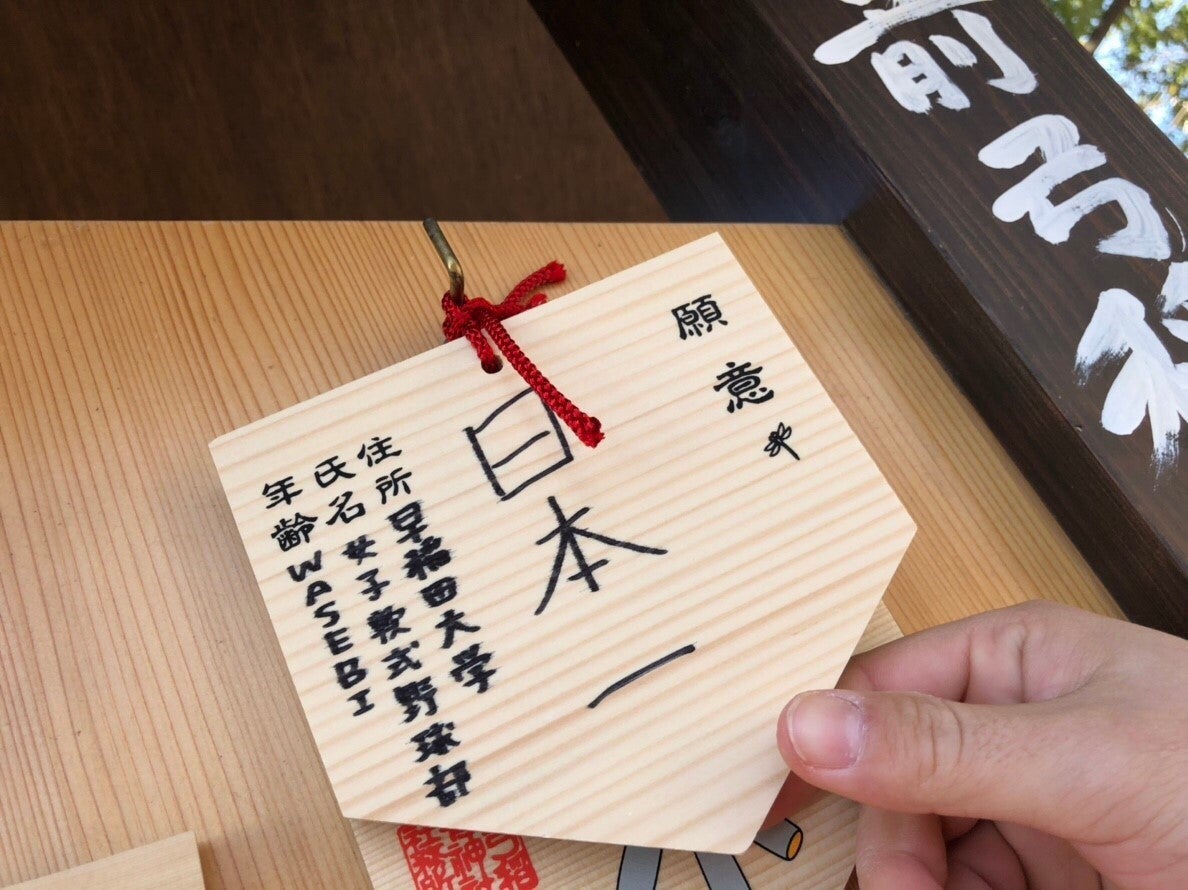 前弓
願意
日本一
住所 早稲田大学
氏名 女子軟式野球部
年齢 WASEBI